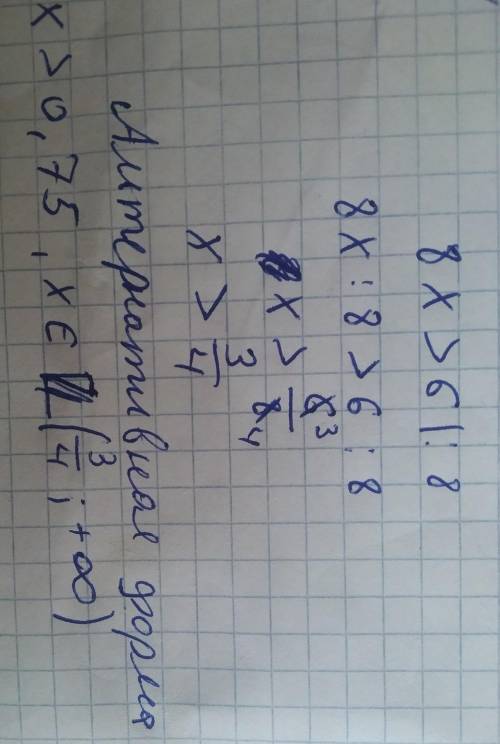 8x > 6 |: 8
8x : 8 > 6 : 8
x > 6 3 / 8 4
x > 3/4
Альтернативная форма
x > 0,75 , x ∈ (3/4 ; +∞)